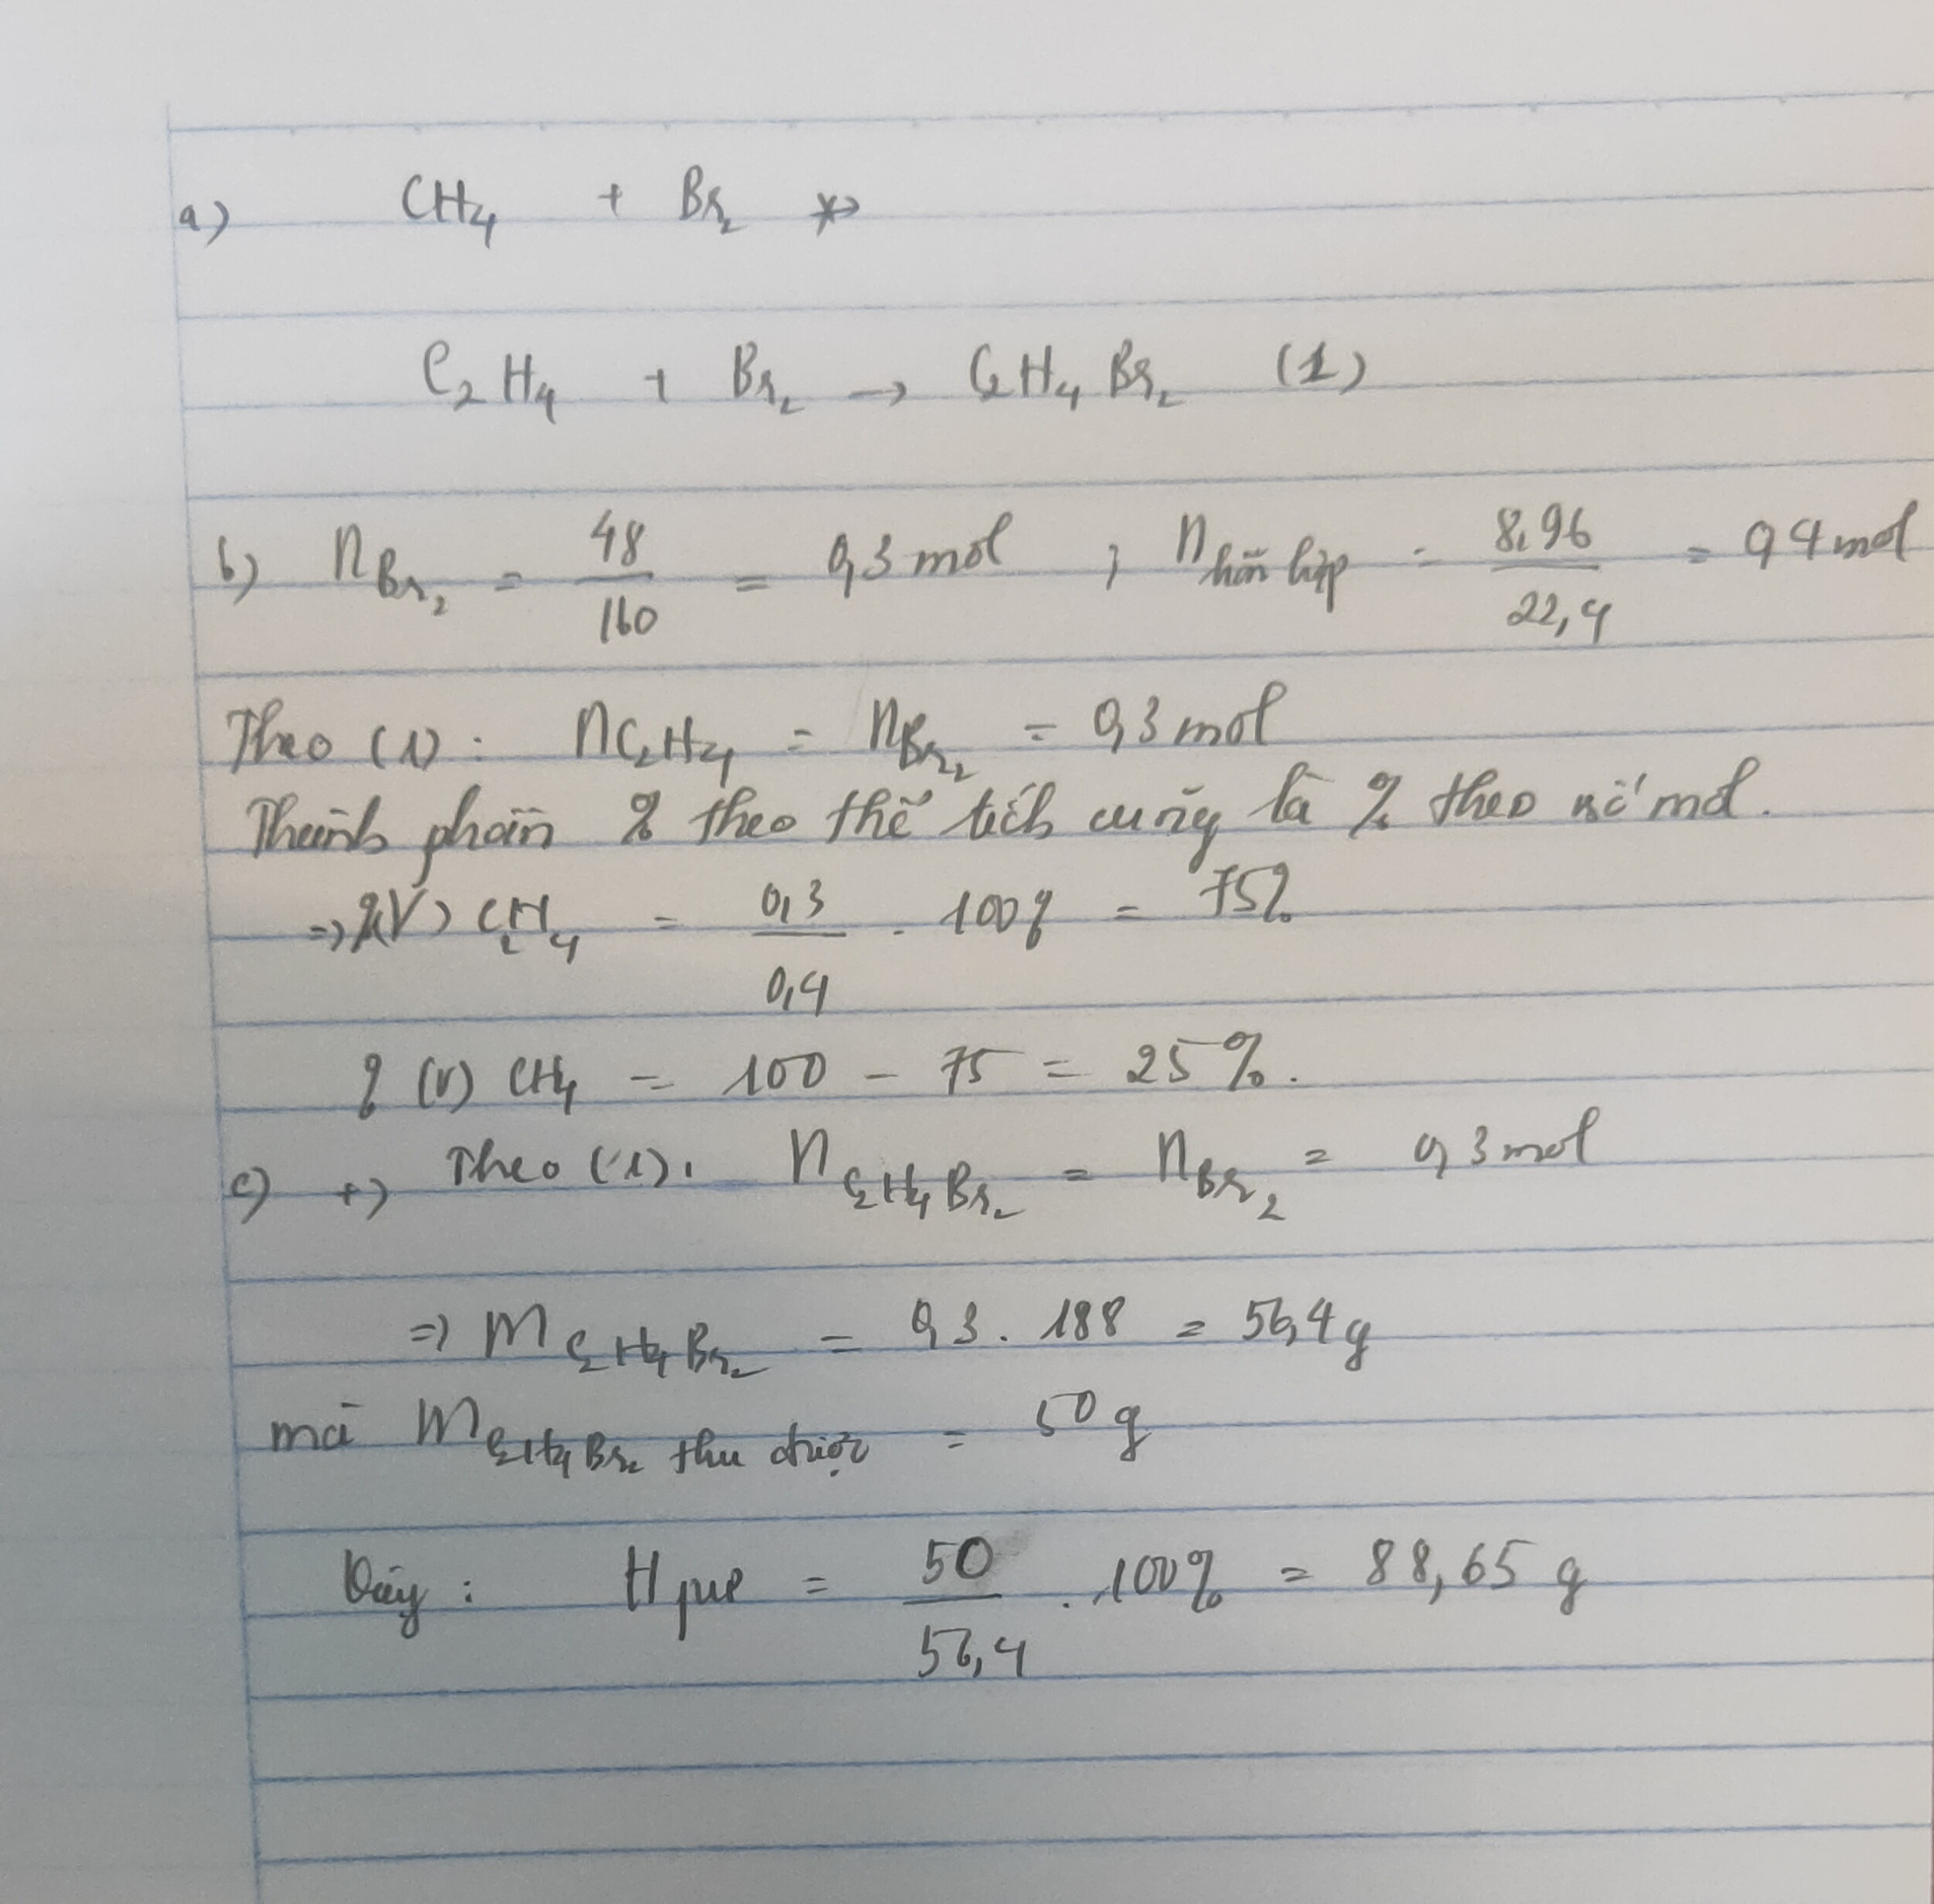 a) CH₄ + Br₂ ↛
C₂H₄ + Br₂ → C₂H₄Br₂ (1)
b) nBr₂ = 48/160 = 0,3 mol ; n hỗn hợp = 8,96/22,4 = 0,4 mol
Theo (1): nC₂H₄ = nBr₂ = 0,3 mol
Thành phần % theo thể tích cũng là % theo số mol.
=> %(V) C₂H₄ = 0,3/0,4 . 100% = 75%
% (V) CH₄ = 100 - 75 = 25%.
c) +) Theo (1): nC₂H₄Br₂ = nBr₂ = 0,3 mol
=> mC₂H₄Br₂ = 0,3 . 188 = 56,4g
mà mC₂H₄Br₂ thu được = 50g
Vậy: Hpư = 50/56,4 . 100% = 88,65 g